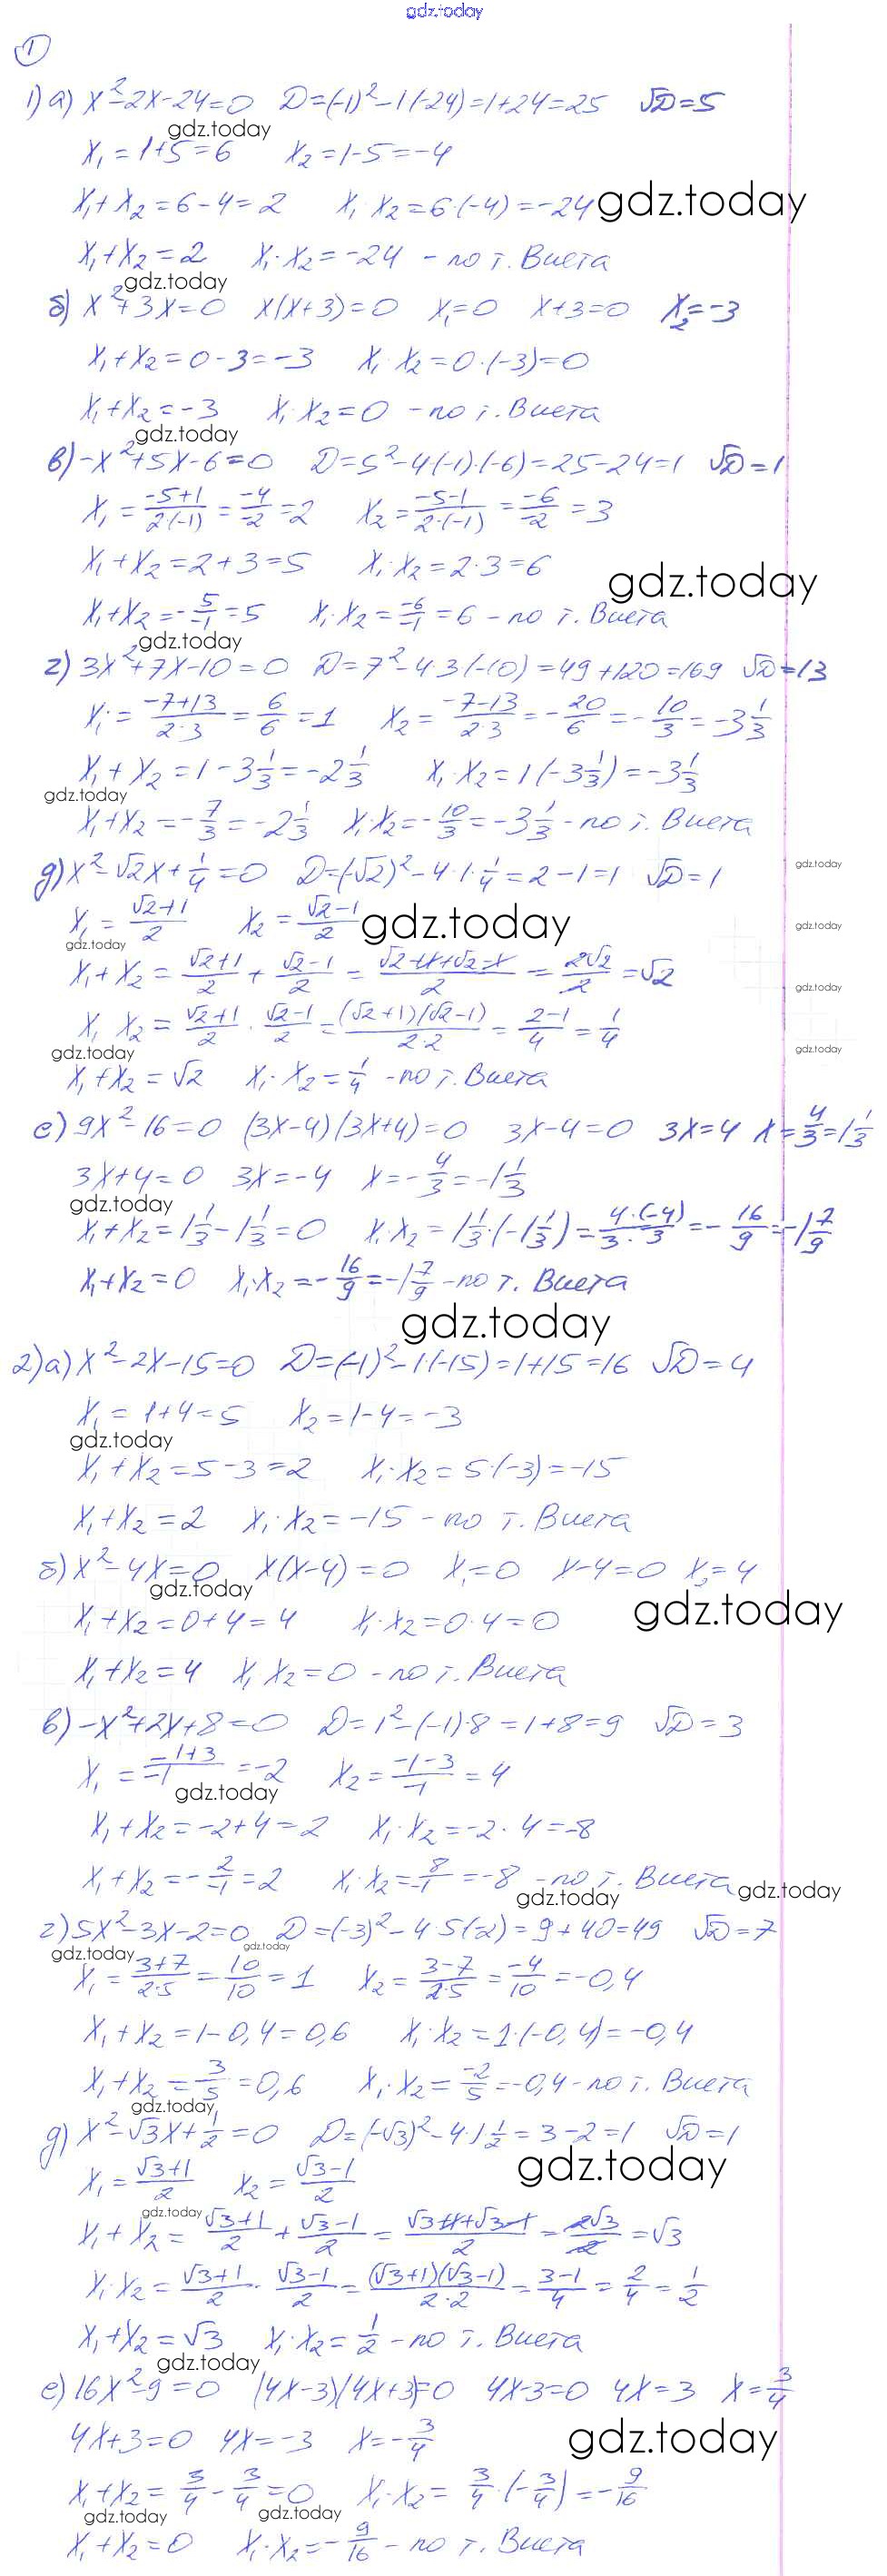 gdz.today
1
1) а) x²-2x-24=0 D=(-1)²-1(-24)=1+24=25 √D=5
gdz.today
x₁=1+5=6 x₂=1-5=-4
x₁+x₂=6-4=2 x₁·x₂=6·(-4)=-24 gdz.today
x₁+x₂=2 x₁·x₂=-24 - по т. Виета
gdz.today
б) x²+3x=0 x(x+3)=0 x₁=0 x+3=0 x₂=-3
x₁+x₂=0-3=-3 x₁·x₂=0·(-3)=0
x₁+x₂=-3 x₁·x₂=0 - по т. Виета
gdz.today
в) -x²+5x-6=0 D=5²-4·(-1)·(-6)=25-24=1 √D=1
x₁=(-5+1)/(2·(-1))=-4/-2=2 x₂=(-5-1)/(2·(-1))=-6/-2=3
x₁+x₂=2+3=5 x₁·x₂=2·3=6
gdz.today
x₁+x₂=-5/-1=5 x₁·x₂=-6/-1=6 - по т. Виета
gdz.today
г) 3x²+7x-10=0 D=7²-4·3·(-10)=49+120=169 √D=13
x₁=(-7+13)/(2·3)=6/6=1 x₂=(-7-13)/(2·3)=-20/6=-10/3=-3 1/3
x₁+x₂=1-3 1/3=-2 1/3 x₁·x₂=1·(-3 1/3)=-3 1/3
gdz.today
x₁+x₂=-7/3=-2 1/3 x₁·x₂=-10/3=-3 1/3 - по т. Виета
gdz.today
д) x²-√2x+1/4=0 D=(-√2)²-4·1·1/4=2-1=1 √D=1
x₁=(√2+1)/2 x₂=(√2-1)/2 gdz.today
gdz.today
gdz.today
x₁+x₂=(√2+1)/2+(√2-1)/2=(√2+1+√2-1)/2=2√2/2=√2
gdz.today
x₁·x₂=(√2+1)/2·(√2-1)/2=((√2+1)(√2-1))/(2·2)=(2-1)/4=1/4
gdz.today
gdz.today
x₁+x₂=√2 x₁·x₂=1/4 - по т. Виета
е) 9x²-16=0 (3x-4)(3x+4)=0 3x-4=0 3x=4 x=4/3=1 1/3
3x+4=0 3x=-4 x=-4/3=-1 1/3
gdz.today
x₁+x₂=1 1/3-1 1/3=0 x₁·x₂=1 1/3·(-1 1/3)=(4·(-4))/(3·3)=-16/9=-1 7/9
x₁+x₂=0 x₁·x₂=-16/9=-1 7/9 - по т. Виета
gdz.today
2) а) x²-2x-15=0 D=(-1)²-1(-15)=1+15=16 √D=4
x₁=1+4=5 x₂=1-4=-3
gdz.today
x₁+x₂=5-3=2 x₁·x₂=5·(-3)=-15
x₁+x₂=2 x₁·x₂=-15 - по т. Виета
б) x²-4x=0 x(x-4)=0 x₁=0 x-4=0 x₂=4
gdz.today
gdz.today
x₁+x₂=0+4=4 x₁·x₂=0·4=0
x₁+x₂=4 x₁·x₂=0 - по т. Виета
в) -x²+2x+8=0 D=1²-(-1)·8=1+8=9 √D=3
x₁=(-1+3)/-1=-2 x₂=(-1-3)/-1=4
gdz.today
x₁+x₂=-2+4=2 x₁·x₂=-2·4=-8
x₁+x₂=-2/-1=2 x₁·x₂=8/-1=-8 - по т. Виета
gdz.today gdz.today
г) 5x²-3x-2=0 D=(-3)²-4·5(-2)=9+40=49 √D=7
gdz.today gdz.today
x₁=(3+7)/(2·5)=10/10=1 x₂=(3-7)/(2·5)=-4/10=-0,4
x₁+x₂=1-0,4=0,6 x₁·x₂=1·(-0,4)=-0,4
x₁+x₂=3/5=0,6 x₁·x₂=-2/5=-0,4 - по т. Виета
gdz.today
д) x²-√3x+1/2=0 D=(-√3)²-4·1·1/2=3-2=1 √D=1
gdz.today
x₁=(√3+1)/2 x₂=(√3-1)/2
gdz.today
x₁+x₂=(√3+1)/2+(√3-1)/2=(√3+1+√3-1)/2=2√3/2=√3
x₁·x₂=(√3+1)/2·(√3-1)/2=((√3+1)(√3-1))/(2·2)=(3-1)/4=2/4=1/2
x₁+x₂=√3 x₁·x₂=1/2 - по т. Виета
gdz.today
е) 16x²-9=0 (4x-3)(4x+3)=0 4x-3=0 4x=3 x=3/4
4x+3=0 4x=-3 x=-3/4 gdz.today
x₁+x₂=3/4-3/4=0 x₁·x₂=3/4·(-3/4)=-9/16
gdz.today gdz.today
x₁+x₂=0 x₁·x₂=-9/16 - по т. Виета